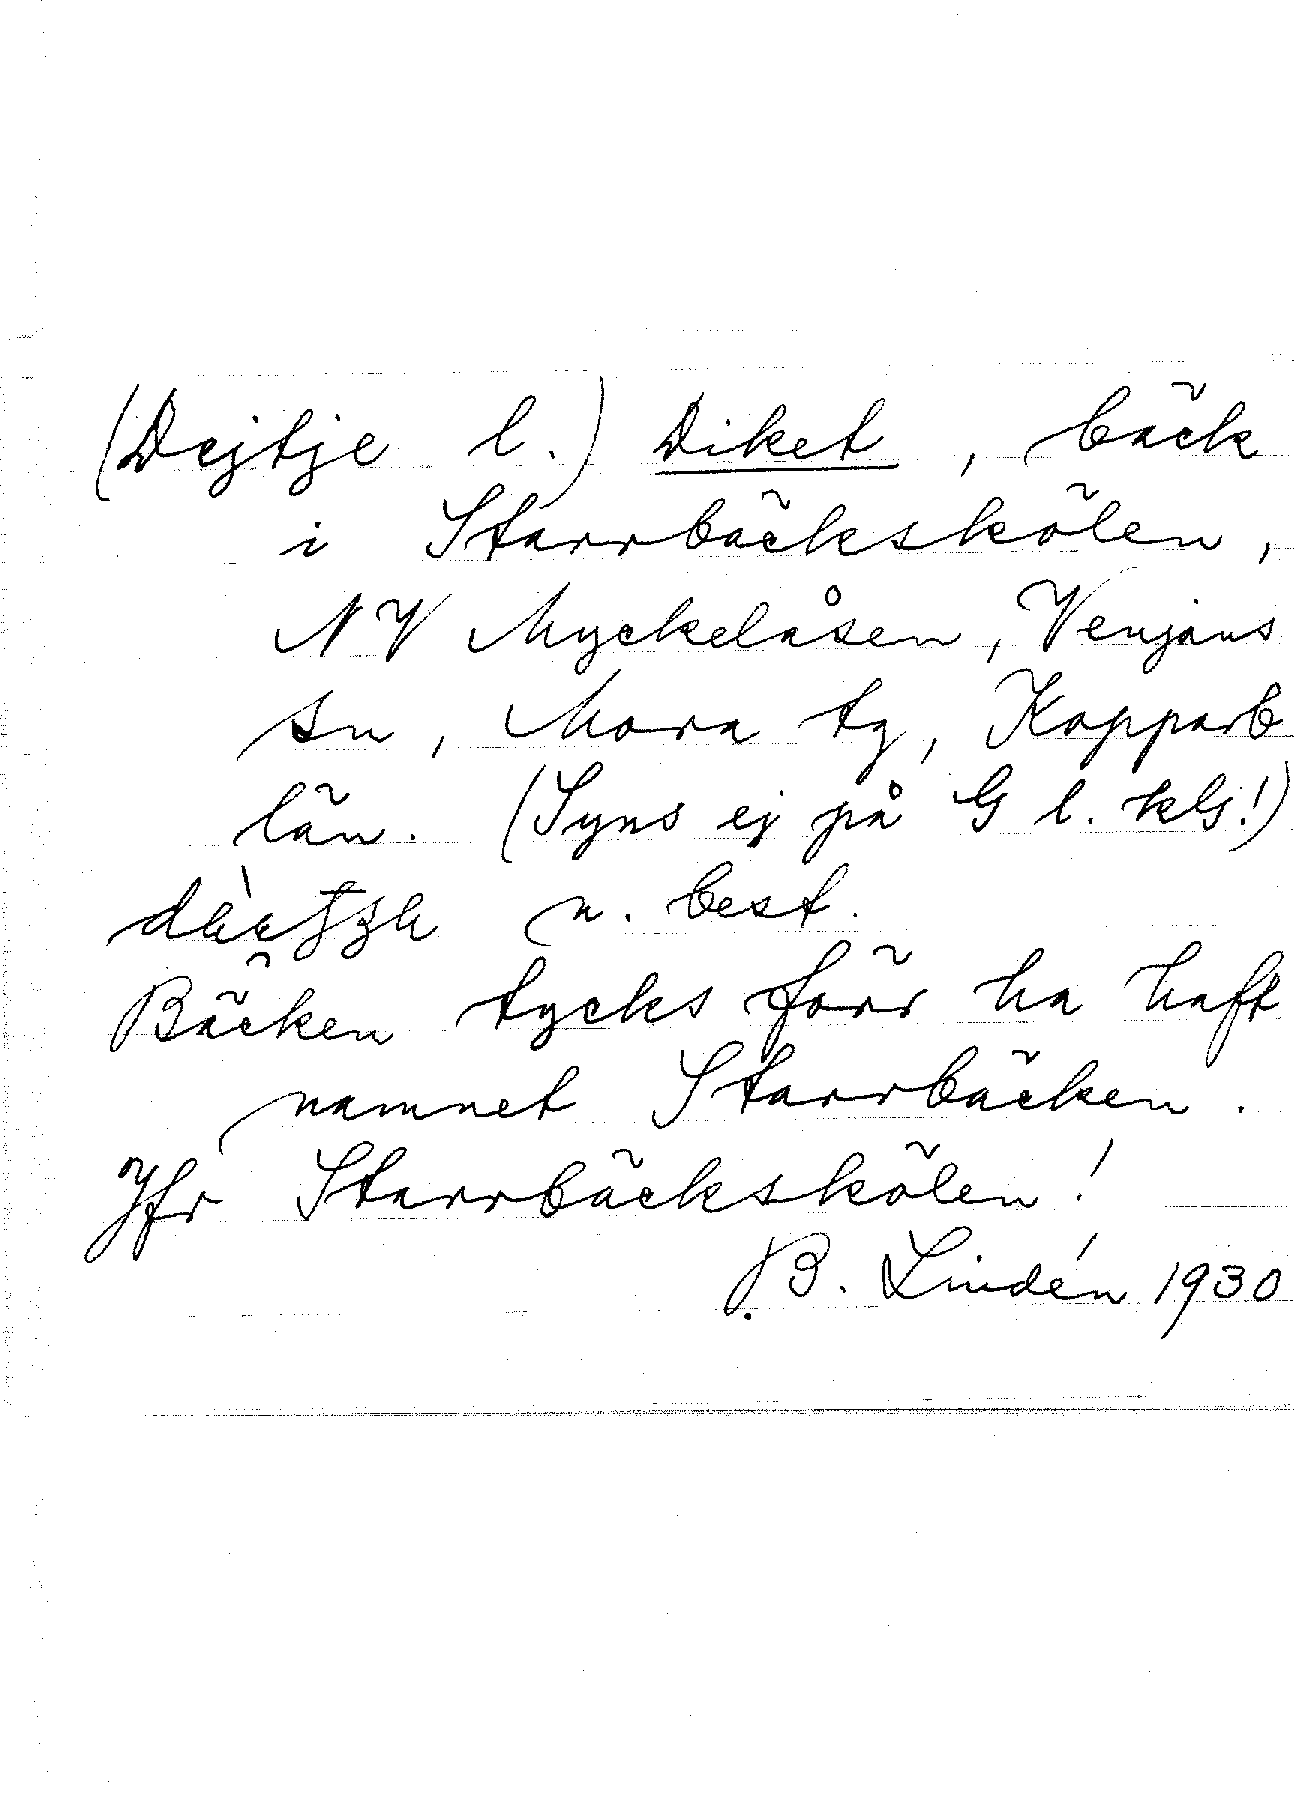 (Dejtje l.) Diket, bäck
i Starrbäckskölen,
NV Myckelåsen, Venjans
sn, Mora tg, Kopparb
län. (Syns ej på G l. kG!)
n. best.
Bäcken tycks förr ha haft
namnet Starrbäcken.
Jfr Starrbäckskölen!
B. Lindén 1930